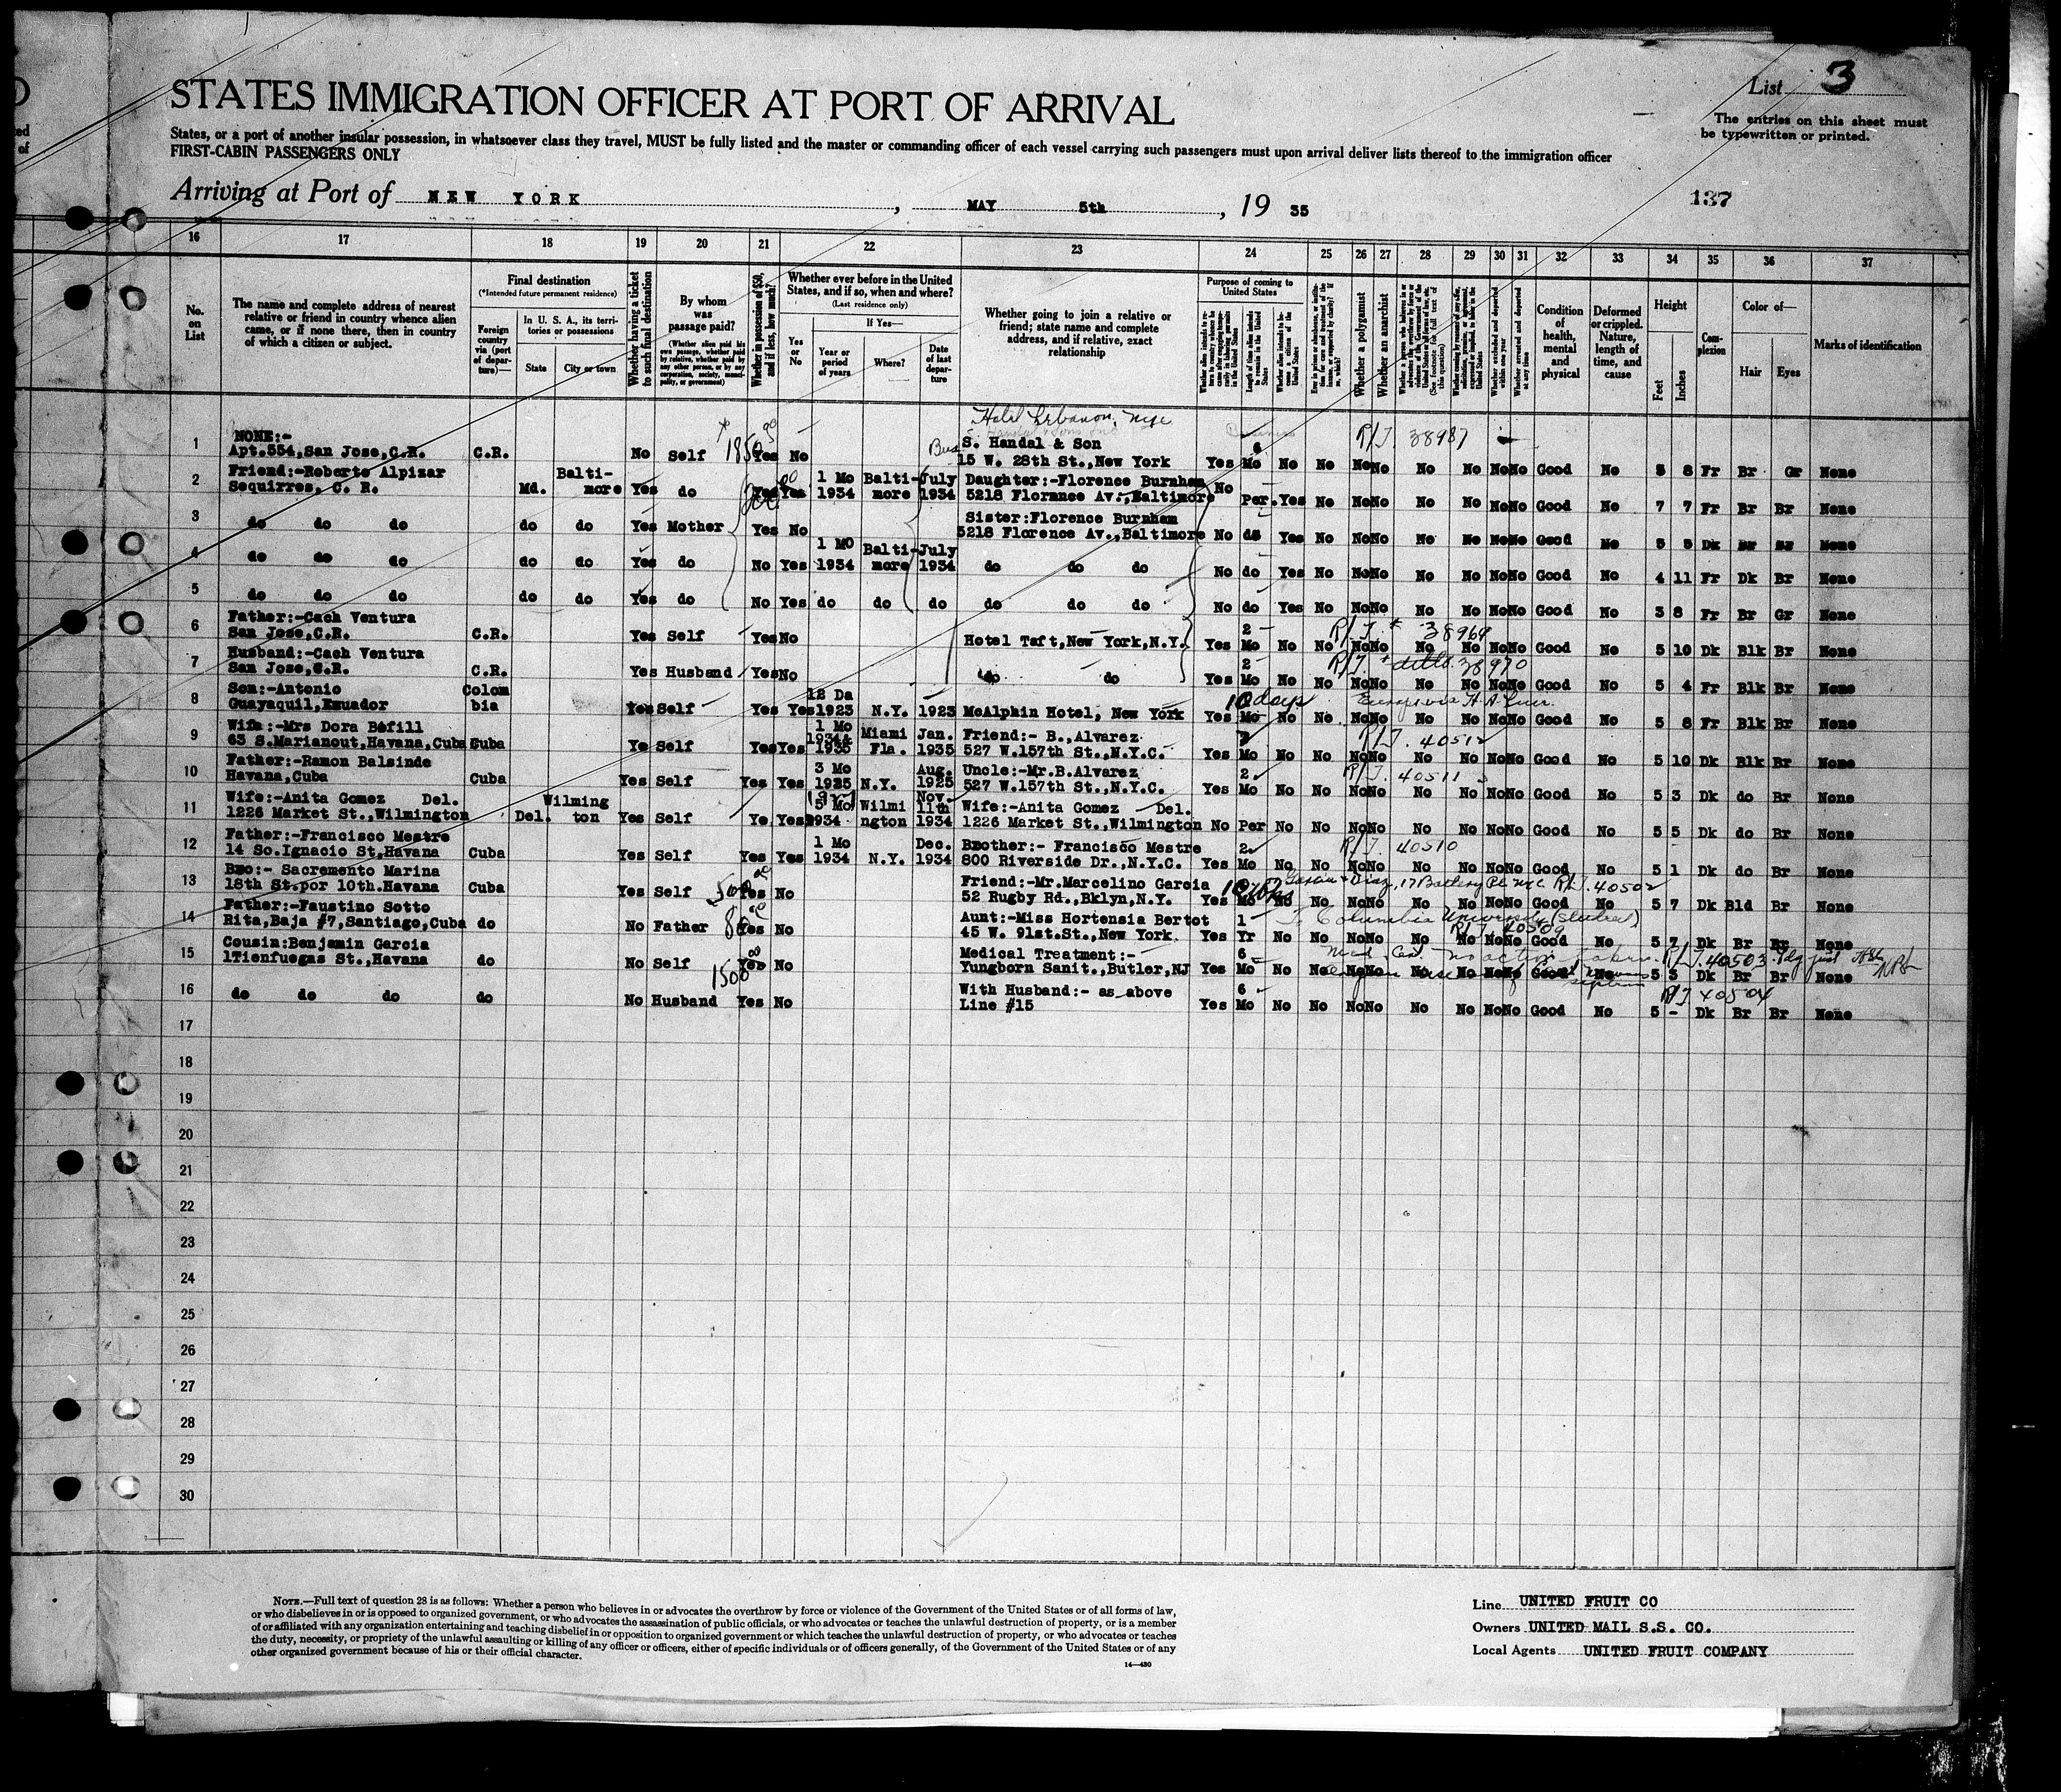 List 3
STATES IMMIGRATION OFFICER AT PORT OF ARRIVAL
The entries on this sheet must
be typewritten or printed.
States, or a port of another insular possession, in whatsoever class they travel, MUST be fully listed and the master or commanding officer of each vessel carrying such passengers must upon arrival deliver lists thereof to the immigration officer
FIRST-CABIN PASSENGERS ONLY
Arriving at Port of NEW YORK, MAY 5th, 19 35
137
16 17 18 19 20 21 22 23 24 25 26 27 28 29 30 31 32 33 34 35 36 37
No. on List
The name and complete address of nearest relative or friend in country whence alien came, or if none there, then in country of which a citizen or subject.
Final destination
(*Intended future permanent residence)
Foreign country via (port of departure)—
In U. S. A., its territories or possessions
State City or town
Whether having a ticket to such final destination
By whom was passage paid?
(Whether alien paid his own passage, whether paid by relative, whether paid by any other person, or by any corporation, society, municipality, or government)
Whether in possession of $50, and if less, how much?
Whether ever before in the United States, and if so, when and where?
(Last residence only)
Yes or No
If Yes—
Year or period of years
Where?
Date of last departure
Whether going to join a relative or friend; state name and complete address, and if relative, exact relationship
Purpose of coming to United States
Whether a polygamist
Whether an anarchist
Whether excluded and deported within one year
Whether arrested and deported at any time
Condition of health, mental and physical
Deformed or crippled. Nature, length of time, and cause
Height
Feet Inches
Complexion
Color of—
Hair Eyes
Marks of identification
Hotel Lebanon. NYC
1 NONE:- Apt.554,San Jose,C.R. C.R. No Self 1850 Yes No Bus S. Handal & Son 15 W. 28th St.,New York Yes 6 Mo No No No No No No No No Good No 5 8 Fr Br Gr None
R/T. 38987
2 Friend:-Roberto Alpizar Sequirres, C. R. Md. Baltimore Yes do Yes Yes 1 Mo 1934 Baltimore July 1934 Daughter:-Florence Burnham 5218 Florance Av.,Baltimore No Per. Yes No No No No No No No Good No 7 7 Fr Br Br None
3 do do do do do Yes Mother Yes No Sister:Florence Burnham 5218 Florence Av.,Baltimore No do Yes No No No No No No No Good No 5 5 Dk Br Br None
4 do do do do do Yes do No Yes 1 MO 1934 Baltimore July 1934 do do do No do Yes No No No No No No No Good No 4 11 Fr Dk Br None
5 do do do do do Yes do No Yes do do do do do do No do Yes No No No No No No No Good No 3 8 Fr Br Gr None
6 Father:-Cach Ventura San Jose,C.R. C.R. Yes Self Yes No Hotel Taft,New York,N.Y. Yes 2 Mo No No No No No No No No Good No 5 10 Dk Blk Br None
R/T * 38969
7 Husband:-Cach Ventura San Jose,C.R. C.R. Yes Husband Yes No do do Yes 2 Mo No No No No No No No No Good No 5 4 Fr Blk Br None
R/T * ditto 38970
8 Son:-Antonio Guayaquil,Ecuador Colombia Yes Self Yes Yes 12 Da 1923 N.Y. 1923 McAlphin Hotel, New York Yes 10 days Mo No No No No No No No No Good No 5 8 Fr Blk Br None
9 Wife:-Mrs Dora Bofill 63 S.Marianout,Havana,Cuba Cuba Ye Self Yes Yes 1 Mo 1934& 1935 Miami Fla. Jan. 1935 Friend:- B.,Alvarez 527 W.157th St.,N.Y.C. Yes 2 Mo No No No No No No No No Good No 5 10 Dk Blk Br None
R/T. 40512
10 Father:-Ramon Balsinde Havana,Cuba Cuba Yes Self Yes Yes 3 Mo 1925 N.Y. Aug. 1925 Uncle:-Mr.B.Alvarez 527 W.157th St.,N.Y.C. Yes 2 Mo No No No No No No No No Good No 5 3 Dk do Br None
R/T. 40511
11 Wife:-Anita Gomez Del. 1226 Market St.,Wilmington Del. Wilmington Yes Self Ye Yes 5 Mo 1934 Wilmington Nov. 11th 1934 Wife:-Anita Gomez Del. 1226 Market St.,Wilmington No Per No No No No No No No No Good No 5 5 Dk do Br None
12 Father:-Francisco Mestre 14 So.Ignacio St,Havana Cuba Yes Self Yes Yes 1 Mo 1934 N.Y. Dec. 1934 Brother:- Francisco Mestre 800 Riverside Dr.,N.Y.C. Yes 2 Mo No No No No No No No No Good No 5 1 Dk do Br None
R/T. 40510
13 Bro:- Sacremento Marina 18th St.por 10th.Havana Cuba Yes Self 500 Yes No Friend:-Mr.Marcelino Garcia 52 Rugby Rd.,Bklyn,N.Y. Yes Mo No No No No No No No No Good No 5 7 Dk Bld Br None
Garcia + Diaz, 17 Battery Pl. NYC R/T. 40502
14 Father:-Faustino Sotto Rita,Baja #7,Santiago,Cuba do No Father Yes No Aunt:-Miss Hortensia Bertot 45 W. 91st.St.,New York. Yes 1 Yr No No No No No No No No Good No 5 7 Dk Br Br None
To Columbia University (Student)
R/T. 40509
15 Cousin:Benjamin Garcia 1Tienfuegas St.,Havana do No Self 1500 Yes No Medical Treatment:- Yungborn Sanit.,Butler,NJ Yes 6 Mo No No No No No No No No Good No 5 3 Dk Br Br None
R/T. 40503
16 do do do do No Husband Yes No With Husband:- as above Line #15 Yes 6 Mo No No No No No No No No Good No 5 - Dk Br Br None
R/T 40504
17
18
19
20
21
22
23
24
25
26
27
28
29
30
NOTE.—Full text of question 28 is as follows: Whether a person who believes in or advocates the overthrow by force or violence of the Government of the United States or of all forms of law,
or who disbelieves in or is opposed to organized government, or who advocates the assassination of public officials, or who advocates or teaches the unlawful destruction of property, or is a member
of or affiliated with any organization entertaining and teaching disbelief in or opposition to organized government or which teaches the unlawful destruction of property, or who advocates or teaches
the duty, necessity, or propriety of the unlawful assaulting or killing of any officer or officers, either of specific individuals or of officers generally, of the Government of the United States or of any
other organized government because of his or their official character.
14—430
Line UNITED FRUIT CO
Owners UNITED MAIL S.S. CO.
Local Agents UNITED FRUIT COMPANY